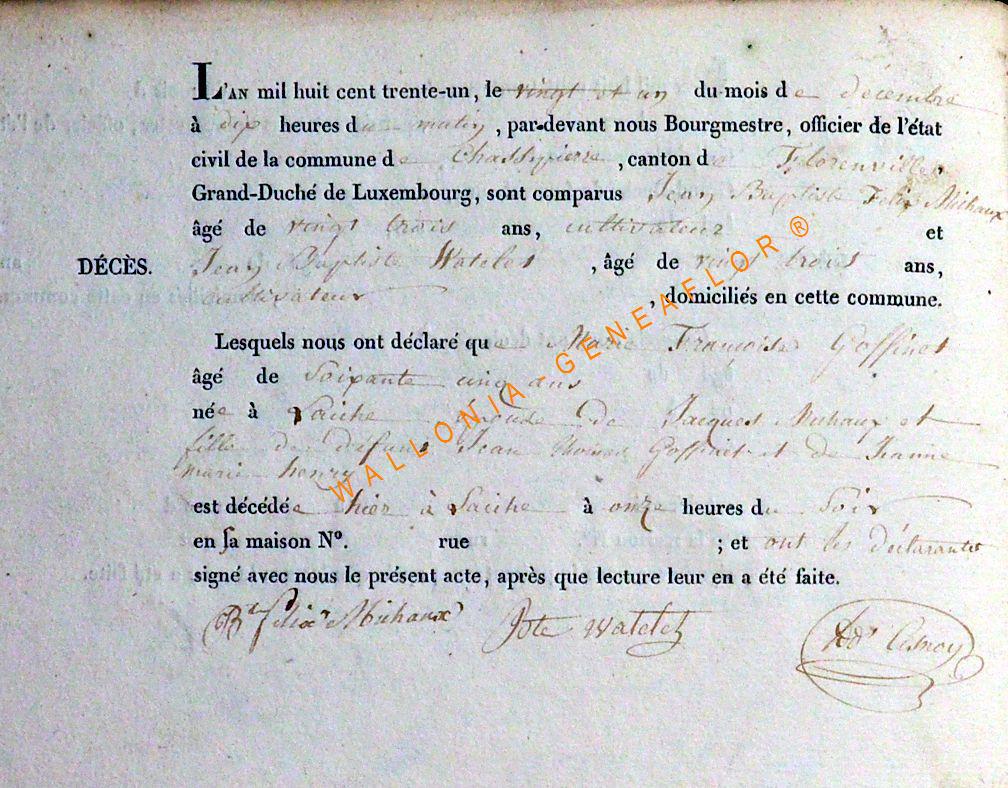 L'AN mil huit cent trente-un, le vingt et un du mois de décembre
à dix heures du matin, par-devant nous Bourgmestre, officier de l'état
civil de la commune de Chassepierre, canton de Florenville,
Grand-Duché de Luxembourg, sont comparus Jean Baptiste Felix Michaux
âgé de vingt trois ans, cultivateur et
DÉCÈS.
Jean Baptiste Watelet, âgé de vingt trois ans,
cultivateur, domiciliés en cette commune.
Lesquels nous ont déclaré que Marie Françoise Goffinet
âgé de soixante cinq ans
née à Laiche épouse de Jacques Michaux et
fille de défunt Jean Goffinet et de Jeanne
marie henry
est décédée hier à Laiche à onze heures du soir
en sa maison N°. rue ; et ont les déclarants
signé avec nous le présent acte, après que lecture leur en a été faite.
Bte felix Michaux Jbte watelet
WALLONIA-GENEAFLOR®